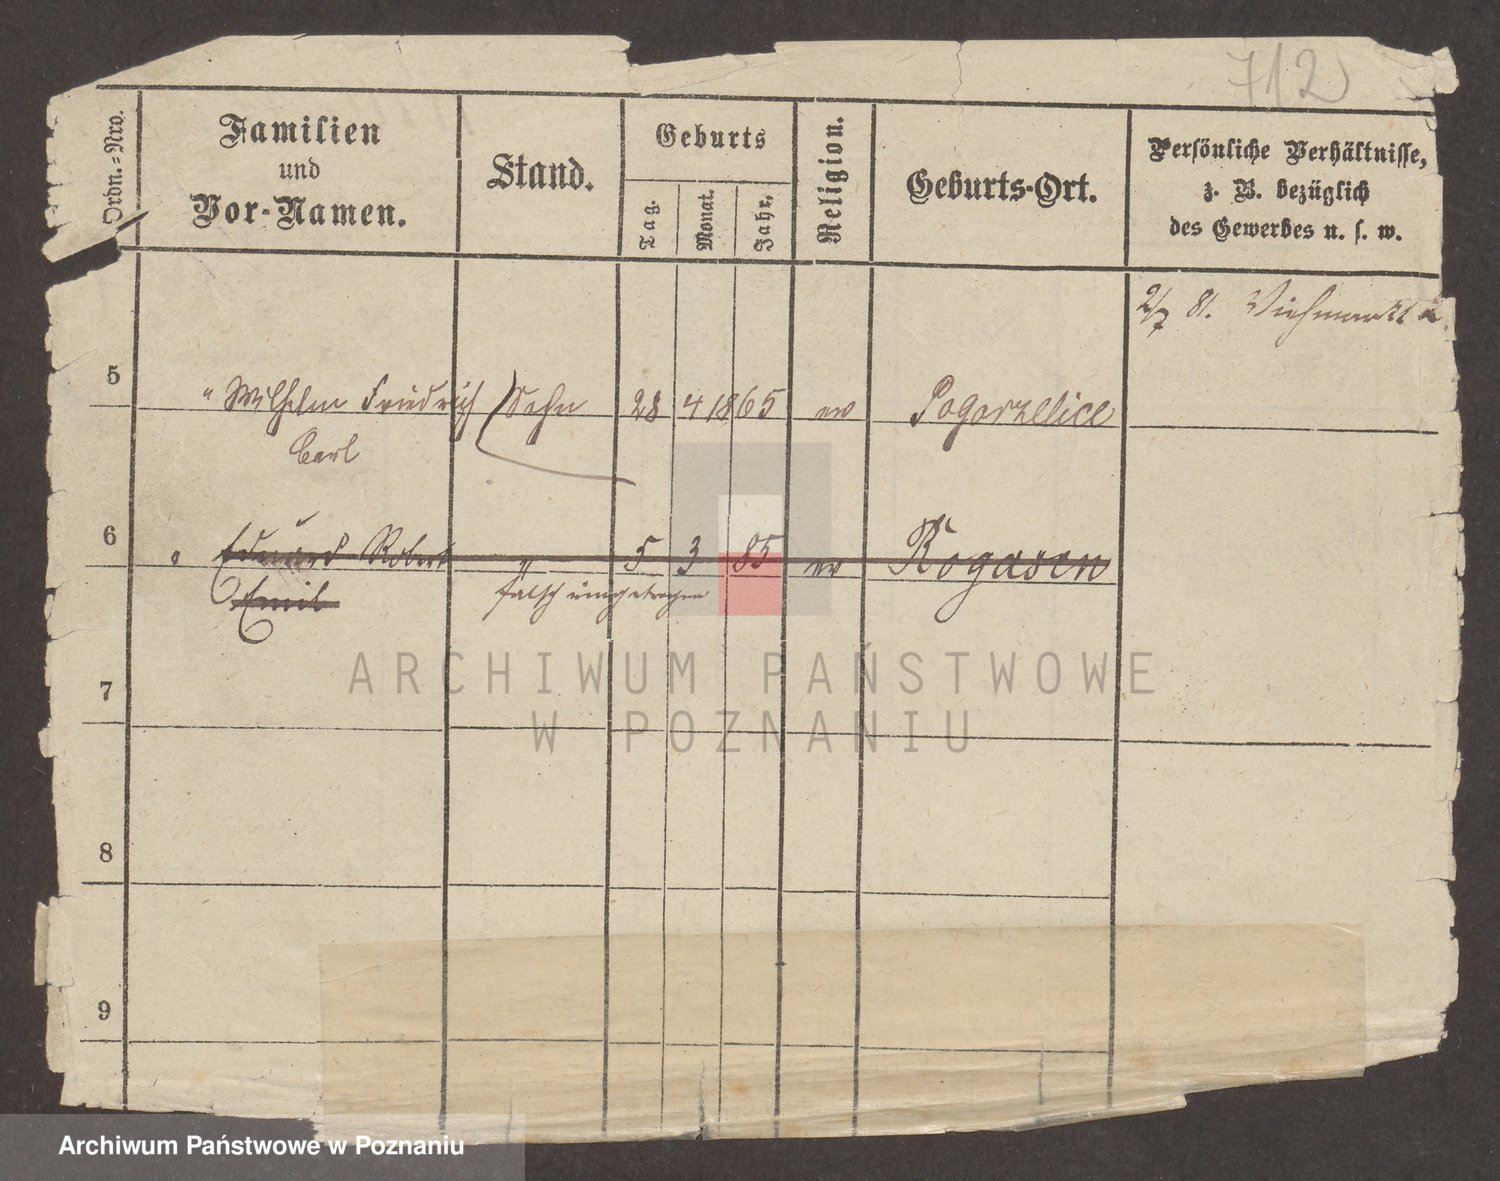 712
Ordn.=Nro.
Familien
und
Vor-Namen.
Stand.
Geburts
Tag.
Monat.
Jahr,
Religion.
Geburts-Ort.
Persönliche Verhältnisse,
z. B. bezüglich
des Gewerbes u. s. w.
2/7 81. Viehmarkt 2.
5 " Wilhelm Friedrich Sohn 28 4 1865 ev Pogorzelice
Carl
6 " Eduard Robert " 5 3 85 ev Rogasen
Emil falsch eingetragen
7
ARCHIWUM PAŃSTWOWE
W POZNANIU
8
9
Archiwum Państwowe w Poznaniu